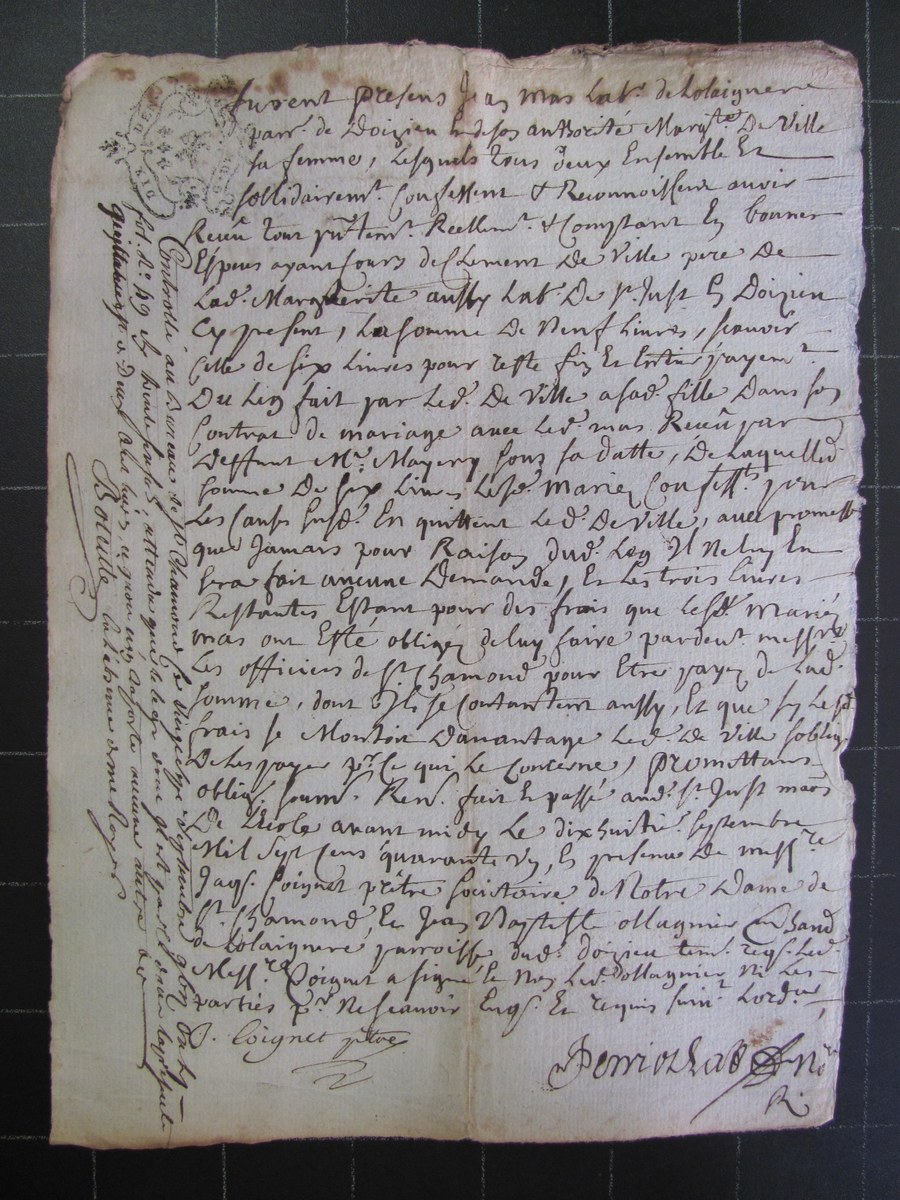 furent presens Jean Mas Labr. de Lolaignere
parr. de Doizieu & de son authorité Margte. De Ville
sa femme, Lesquels tous deux Ensemble Et
sollidairemt. Confessent & Reconnoissent avoir
Receu tout pntemt. Reellemt. & Comptant En bonnes
Especes ayant Cours de Clement De Ville pere De
Lad. Marguerite aussy Labr. De St. Just En Doizieu
Cy present, La somme De Neuf Livres, scavoir
Celle de six Livres pour reste fin Et Entier payemt.
Du Leg fait par Led. De Ville a sad. fille Dans son
Contrat de mariage avec Led. mas Receu par
Deffunt Me. Mayery sous sa datte, De Laquelle
somme De six Livres Lesd. mariez Confesst. pour
Les Causes susd. En quittent Led. De Ville, avec promesse
que Jamais pour Raison dud. Leg Il Ne luy En
sera fait aucune Demande, Et Les trois Livres
Restantes Estant pour des frais que Lesd. Mariez
mas ont Esté obligez de luy faire pardevt. messrs.
Les officiers de St. Chamond pour Etre payez de Lad.
somme, dont Ils se Contantent aussy, Et que sy Lesd.
frais se Montoit Davantage Led. De Ville soblige
De Les payer pr. Ce qui Le Concerne, Promettans
oblig. soumn. Renn. fait & passé aud. St. Just maon
De avant midy Le dixhuite. septembre
Mil sept Cens quarante Un, En presence De messre.
Jaqs. Coignet prêtre societaire de Notre Dame de
St. Chamond, Et Jean Baptiste ollagnier
de Lolaignere parroisse dud. doizieu tem. reqs. Led.
Messre. Coignet a signé & Non Led. ollagnier Ni Les
parties pr. Ne scavoir Enqs. Et requis suivt. Lordce.
J. Coignet ptre
Perriolat No.
R.
Controllé au Bureau de St. Chamond Le Vingt sept septembre
fol. Ro. 49
Reçu Deux